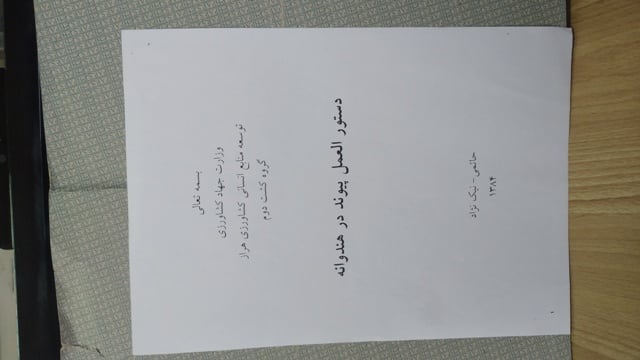 بسمه تعالی
وزارت جهاد کشاورزی
توسعه منابع انسانی کشاورزی هراز
گروه کشت دوم
دستور العمل پیوند در هندوانه
حاتمی - نیک نژاد
۱۳۸۴